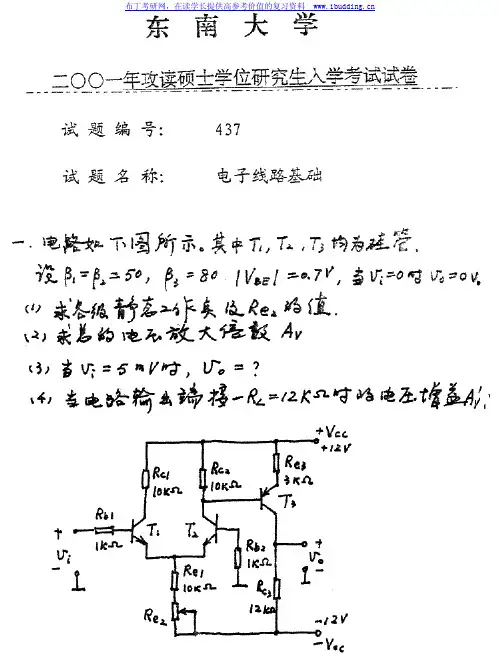 布丁考研网，在读学长提供高参考价值的复习资料 www.ibudding.cn
东南大学
二〇〇一年攻读硕士学位研究生入学考试试卷
试题编号： 437
试题名称： 电子线路基础
一.电路如下图所示。其中T₁,T₂,T₃均为硅管.
设β₁=β₂=50, β₃=80 |V_BE|=0.7V, 当Vi=0时Vo=0V.
(1)求各级静态工作点及Re2的值.
(2)求总的电压放大倍数 Av
(3)当Vi=5mV时, Vo=?
(4)当电路输出端接一RL=12KΩ时的电压增益Av';
+Vcc
+12V
Rc1
10KΩ
Rc2
10KΩ
Re3
3KΩ
T3
Rb1
1KΩ
T1
T2
Rb2
1KΩ
+
Vi
-
+
Vo
-
Re1
10KΩ
Rc3
12KΩ
Re2
-12V
-Vcc